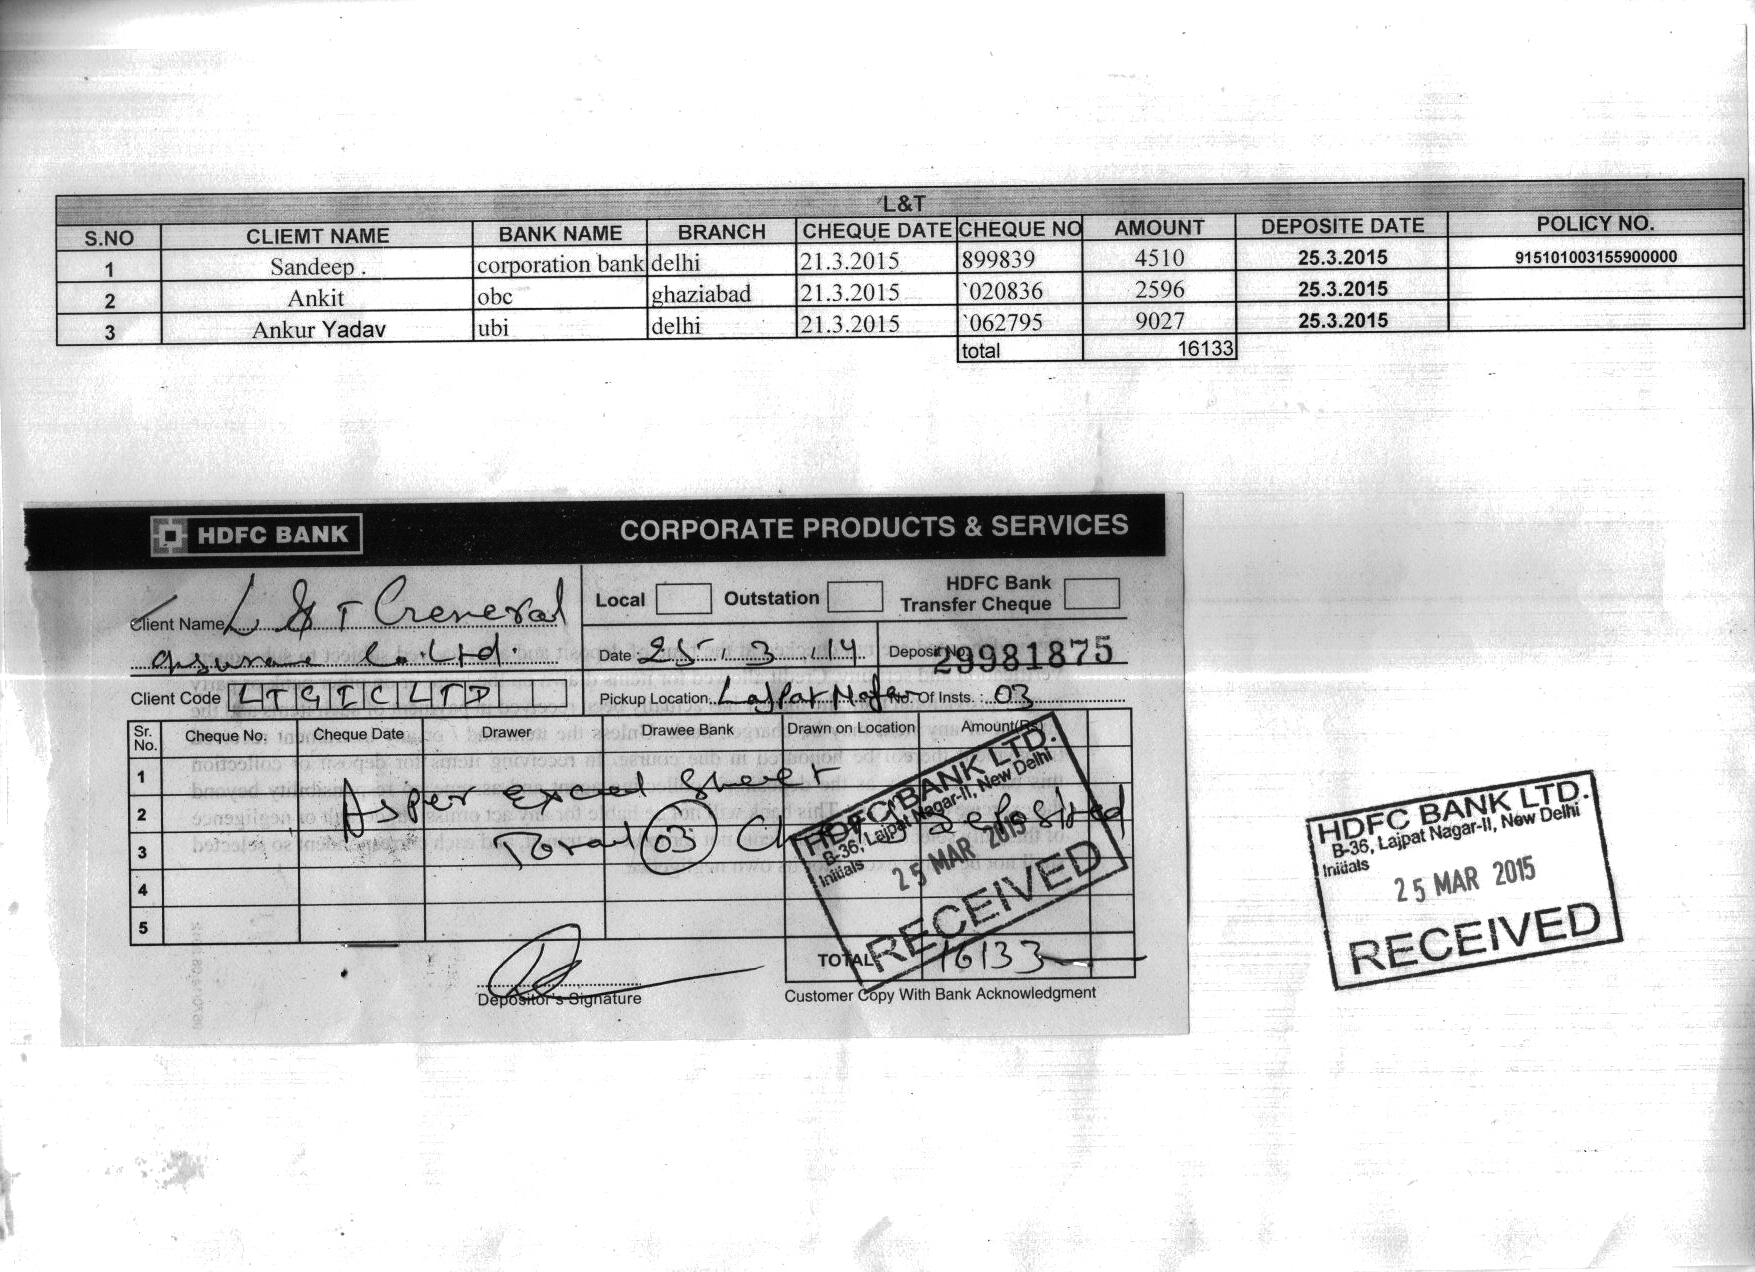 L&T
S.NO CLIEMT NAME BANK NAME BRANCH CHEQUE DATE CHEQUE NO AMOUNT DEPOSITE DATE POLICY NO.
1 Sandeep . corporation bank delhi 21.3.2015 899839 4510 25.3.2015 915101003155900000
2 Ankit obc ghaziabad 21.3.2015 `020836 2596 25.3.2015
3 Ankur Yadav ubi delhi 21.3.2015 `062795 9027 25.3.2015
total 16133
HDFC BANK CORPORATE PRODUCTS & SERVICES
Local Outstation HDFC Bank Transfer Cheque
Client Name L & T General
Co. Ltd.
Date 25.3.14 Deposit No. 29981875
Client Code LTGICLTD Pickup Location: Lajpat Nagar No. Of Insts. : 03
Sr. No. Cheque No. Cheque Date Drawer Drawee Bank Drawn on Location Amount(Rs)
1
As per excel sheet
2
Total 03 deposited
3
4
5
TOTAL 16133
Depositor's Signature
Customer Copy With Bank Acknowledgment
HDFC BANK LTD.
B-36, Lajpat Nagar-II, New Delhi
Initials
25 MAR 2015
RECEIVED
HDFC BANK LTD.
B-36, Lajpat Nagar-II, New Delhi
Initials
25 MAR 2015
RECEIVED